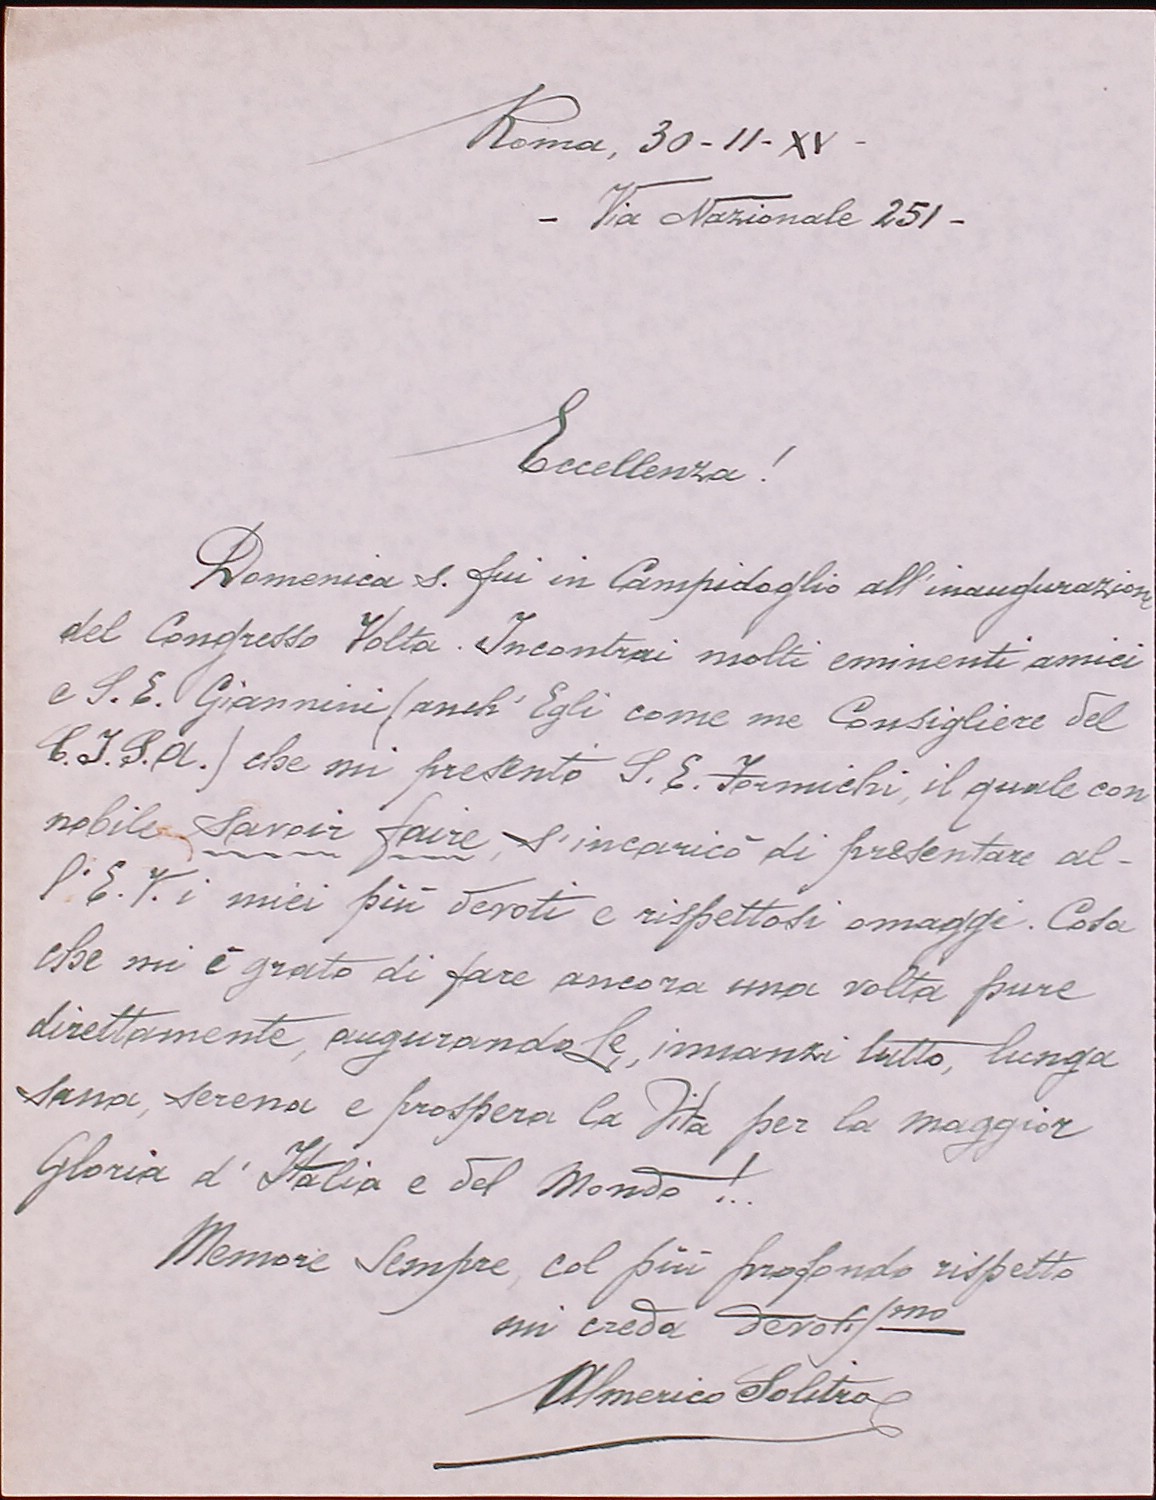 Roma, 30-11-XV-
- Via Nazionale 251 -
Eccellenza!
Domenica s. fui in Campidoglio all'inaugurazione
del Congresso Volta. Incontrai molti eminenti amici
e S. E. Giannini (anch' Egli come me Consigliere del
C.I.S.A.) che mi presentò S. E. Formichi, il quale con
nobile savoir faire, s'incaricò di presentare al-
l'E. V. i miei più devoti e rispettosi omaggi. Cosa
che mi è grato di fare ancora una volta pure
direttamente, augurandoLe, innanzi tutto, lunga
sana, serena e prospera la Vita per la maggior
Gloria d' Italia e del Mondo!..
Memore sempre, col più profondo rispetto
mi creda devotis/mo
Almerico Solitro